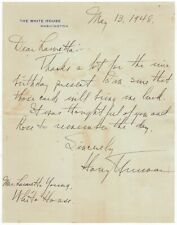 THE WHITE HOUSE
WASHINGTON
May 13, 1948.
Dear Lauretta:
Thanks a lot for the nice
birthday present. I am sure that
those cards will bring me luck.
It was thoughtful of you and
Rose to remember the day.
Sincerely
Harry Truman
Miss Lauretta Young,
White House.